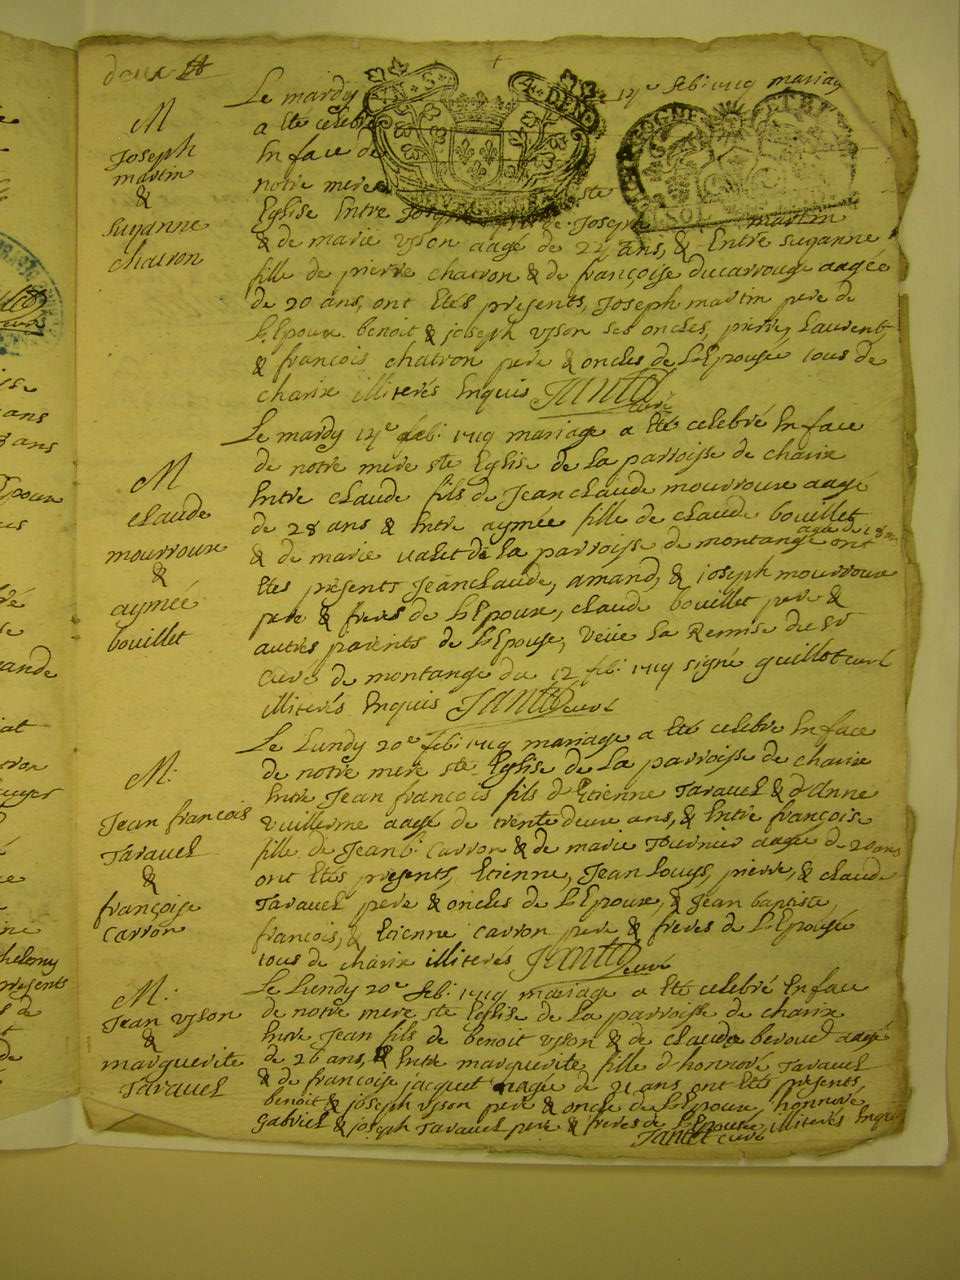 deux
Le mardy 14e feb: 1719 mariag
M
a ete celebré
Joseph
martin
En face de
&
notre mere ste
Suzanne
chatron
Eglise Entre Joseph martin
& de marie yson aagé de 22 ans, & Entre suzanne
fille de pierre chatron & de françoise ducarrouge aagée
de 20 ans, ont Etés présents, Joseph martin pere de
L'Epoux. benoit & joseph yson ses oncles, pierre, Laurent
& francois chatron pere & oncles de L'Epousée tous de
charix illiterés Enquis Jantet curé
Le mardy 14e feb: 1719 mariage a eté celebré En face
M
de notre mere ste Eglise de La parroisse de charix
claude
mourroux
Entre claude fils de Jean claude mourroux aagé
&
de 28 ans & Entre aymée fille de claude bouillet
aymée
bouillet
& de marie ualet de La parroisse de montange aagée de 18 ans ont
Etes présents Jeanclaude, amand, & joseph mourroux
pere & freres de L'Epoux, claude bouillet pere &
autres parents de L'Epouse, veüe La Remise du Sr
Curé de montange du 12 feb: 1719 signé guillot curé
illiterés Enquis Jantet curé
Le Lundy 20e feb: 1719 mariage a eté celebré En face
M:
de notre mere ste Eglise de La parroisse de charix
Jean francois
Taravel
Entre Jean francois fils d'Etienne Taravel & d'Anne
&
vuillerme aagé de trente deux ans, & Entre françoise
françoise
carron
fille de Jean b: carron & de marie Tournier aagée de 20 ans
ont Etés présents, Etienne, Jean Louys, pierre, & claude
Taravel pere & oncles de L'Epoux, & Jean baptiste,
francois, & Etienne carron pere & freres de L'Epousée
tous de charix illiterés Jantet curé
Le Lundy 20e feb: 1719 mariage a eté celebré En face
M:
de notre mere ste Eglise de La parroisse de charix
Jean yson
&
Entre Jean fils de benoit yson & de claude beroud aagé
marguerite
Taravel
de 26 ans, & Entre marguerite fille d'honnoré Taravel
& de françoise jacquet aagée de 21 ans ont Etés présents,
benoit & joseph yson pere & oncle de L'Epoux, honnoré,
gabriel & joseph Taravel pere & freres de L'Epousée illiterés Enquis
Jantet curé